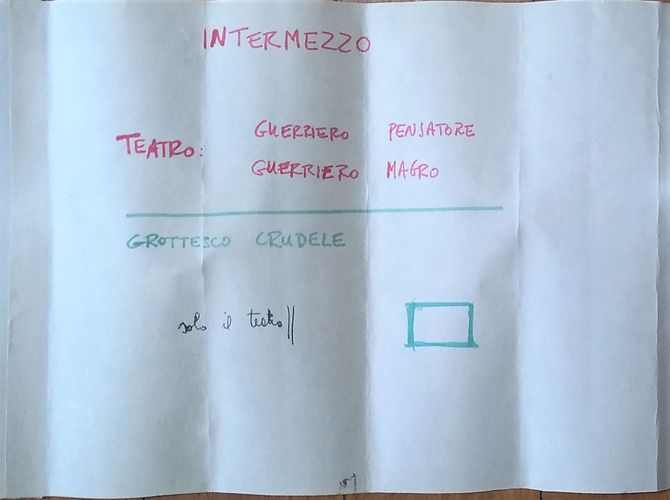 INTERMEZZO
TEATRO: GUERRIERO PENSATORE
GUERRIERO MAGRO
GROTTESCO CRUDELE
solo il teatro